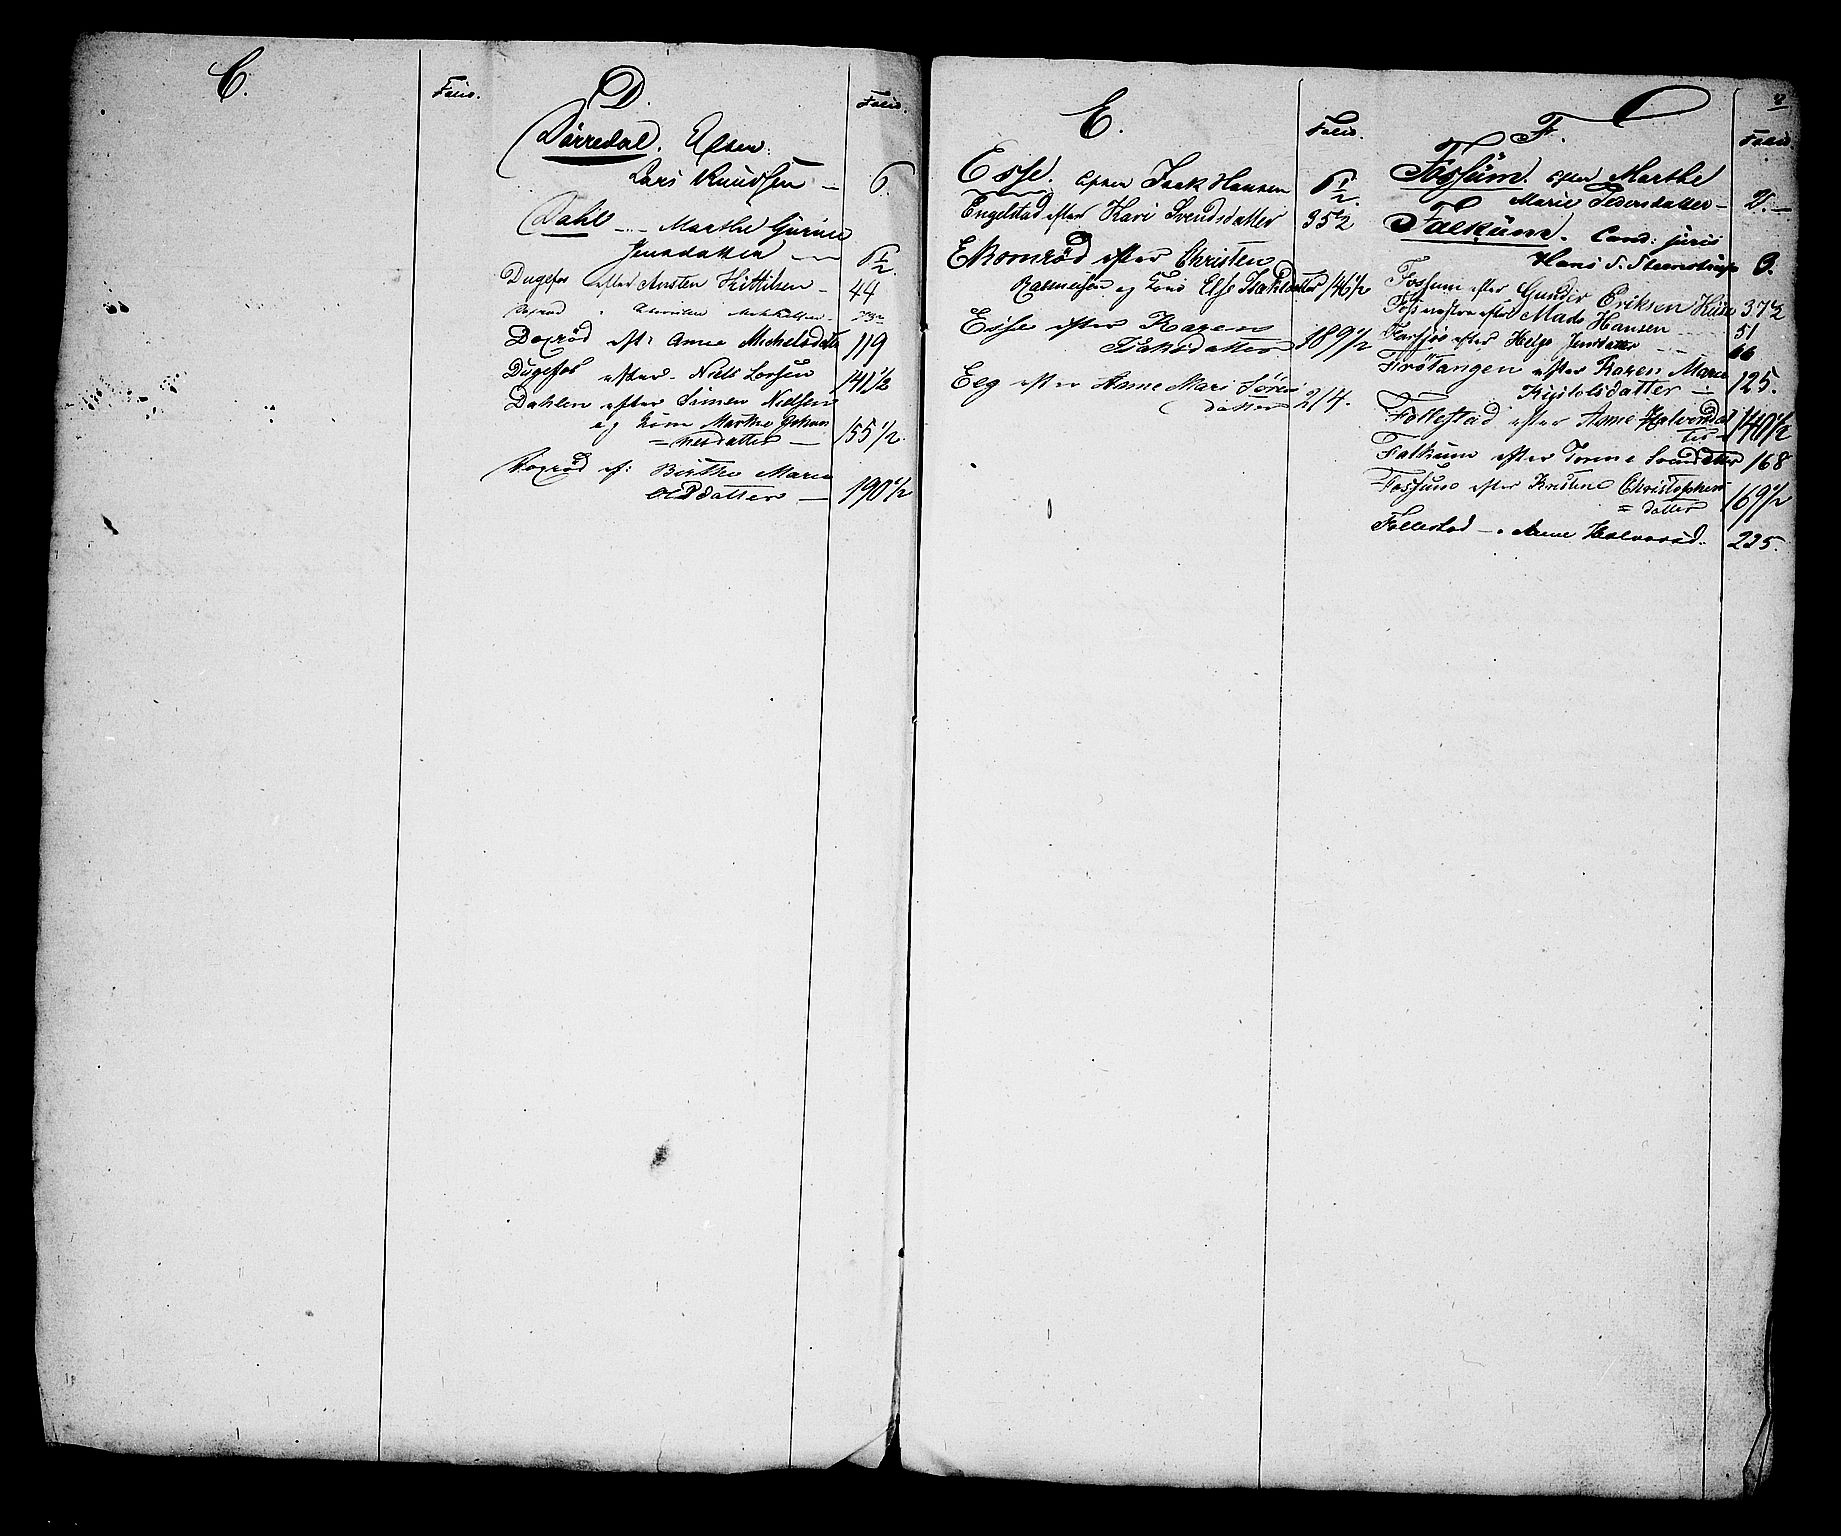 C.
Folio.
D.
Folio.
Dørredal. Efter
Lars Knudsen — 6.
Dahl — Marthe Gurine
Jensdatter — 6 1/2.
Dugefos efter Austen Kittilsen — 44
Doxrød
Doxrød eft: Anne Michelsdatter 119
Dugefos efter Niels Larsen 141 1/2
Dahlen efter Simen Nielsen
og Kone Marthe Johan
= nesdatter — 155 1/2.
Doxrød ef: Birthe Marie
Olsdatter — 190 1/2
E.
Folio.
Esse. efter Isak Hansen 6 1/2.
Engelstad efter Kari Svendsdatter 35 1/2
Ekornrød efter Christen
Rasmussen og Kone Else Isaksdatter 146 1/2
Esse efter Karen
Isaksdatter 189 1/2
Eeg efter Anne Mari Søren
datter 214.
F.
Folio.
Fossum. efter Marthe
Marie Pedersdatter — 2. —
Falkum. Cand: juris
Hans S. Steenstrup 3.
Fossum efter Gunder Eriksen 37 1/2
efter Mads Hansen 51
efter Helge Jensdatter 66
Firøtangen efter Karen Marie
Kistolsdatter — 125.
Follestad efter Anne Halvorsdat
ter — 140 1/2
Falkum efter Svendsdatter 168
Fossum efter Kirstine Christophers
= datter 169 1/2
Follestad — . Anne Halvorsd. 225.